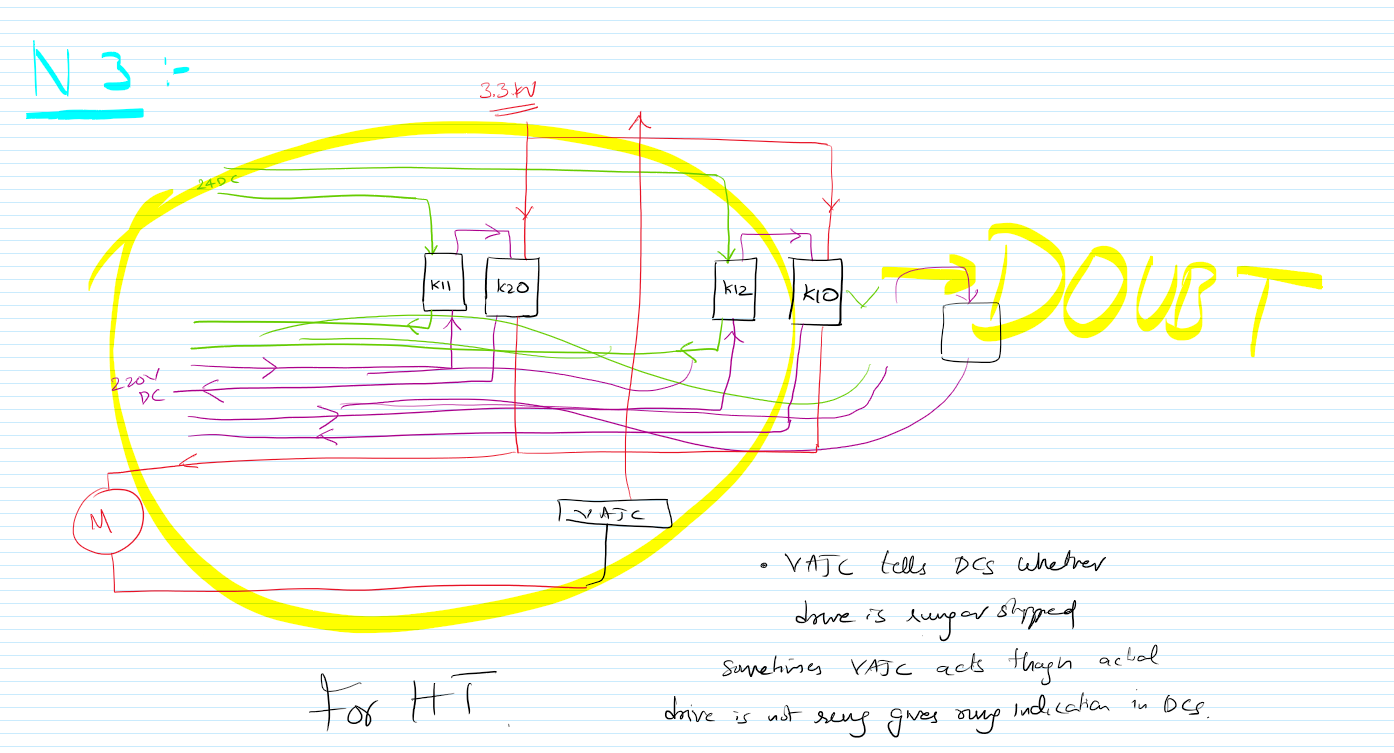 N 3 :-
3.3 kV
24DC
K11
K20
K12
K10
DOUBT
220V
DC
M
VAJC
• VAJC tells DCS whether
drive is rung or stopped
Sometimes VAJC acts though actual
drive is not rung gives rung indication in DCS.
For HT